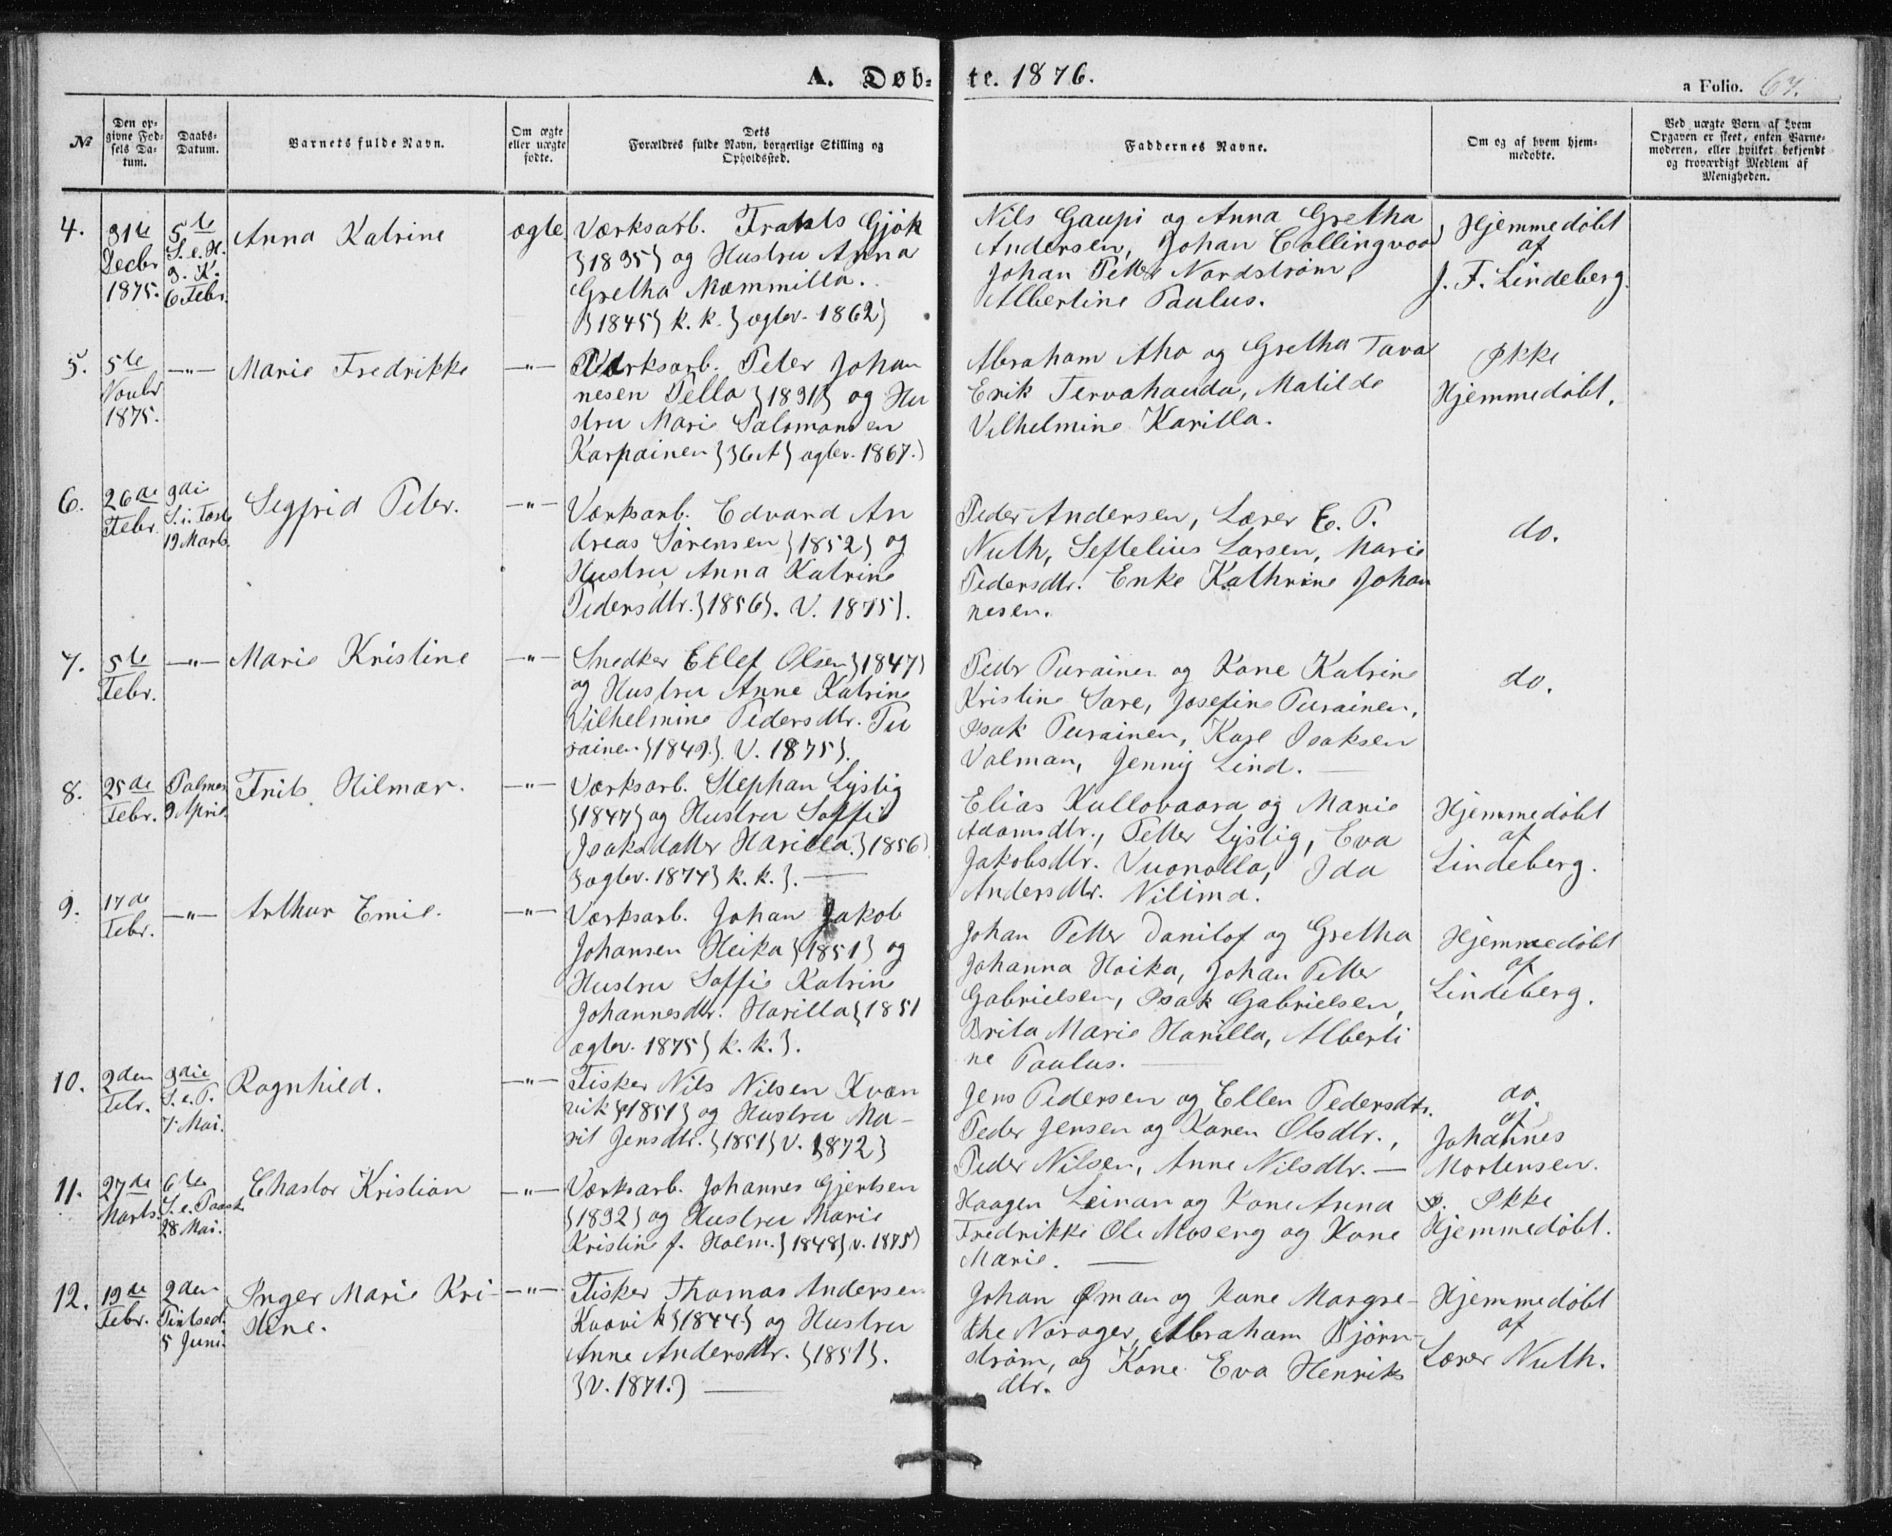 A. Døb-te. 1876.
a Folio. 67.
№
Den op-
givne Fød-
sels Da-
tum.
Daabs-
Datum.
Barnets fulde Navn.
Om ægte
eller uægte
fødte.
Dets
Forældres fulde Navn, borgerlige Stilling og
Opholdssted.
Faddernes Navne.
Om og af hvem hjem-
medøbte.
Ved uægte Børn af hvem
Opgaven er skeet, enten Barne-
moderen, eller hvilket bekjendt
og troværdigt Medlem af
Menigheden.
4.
31te
Decbr
1875.
5te
S. e. H.
3. K.
6 Febr.
Anna Katrine
ægte
Værksarb. Frants Gjøk
}1835} og Hustru Anna
Gretha Mæmmilla.
}1845} k. k. } ægtev. 1862}
Nils Gaupi og Anna Gretha
Andersen, Johan Collingvood,
Johan Petter Nordstrøm,
Albertine Paulus.
Hjemmedøbt
af
J. F. Lindeberg.
5.
5te
Novbr
1875.
—"—
Marie Fredrikke
—"—
Værksarb. Peter Johan
nesen Pello }1831} og Hu
stru Mari Salomonsen
Karpainen }36 A} ægtev. 1867.}
Abraham Aho og Gretha Tava
Erik Tervahauda, Matilde
Vilhelmine Karilla.
Ikke
Hjemmedøbt.
6.
26de
Febr.
3die
S. i. Faste
19 Marts.
Segfrid Peter.
—"—
Værksarb. Edvard An
dreas Sørensen }1852} og
Hustru Anna Katrine
Pedersdtr. }1856}. V. 1875}.
Peder Andersen, Lærer E. P.
Nuth, Seftelius Larsen, Marie
Pedersdtr. Enke Kathrine Johan
nesen.
do.
7.
5te
Febr.
—"—
Marie Kristine
—"—
Snedker Ellef Olsen }1847}
og Hustru Anne Katrine
Vilhelmine Pedersdtr. Pu
rainen }1849.} V. 1875}.
Peder Purainen og Kone Katrine
Kristine Sare, Josefine Purainen,
Isak Purainen, Karl Isaksen
Valman, Jenny Lind. —
do.
8.
25de
Febr.
Palmes.
9 April.
Frits Hilmar.
—"—
Værksarb. Stephan Lystig
}1847} og Hustru Soffie
Isaksdatter Harilla. }1856}
}ægtev. 1874} k. k. }. —
Elias Kullovaara og Marie
Adamsdtr., Petter Lystig, Eva
Jakobsdtr. Vuonolla, Ida
Andersdtr. Nilima.
Hjemmedøbt
af
Lindeberg.
9.
17de
Febr.
—"—
Arthur Emil.
—"—
Værksarb. Johan Jakob
Johansen Heika }1851} og
Hustru Soffie Katrine
Johannesdtr. Harilla }1851
ægtev. 1875} k. k. }.
Johan Petter Danilof og Gretha
Johanna Hoika, Johan Petter
Gabrielsen, Isak Gabrielsen,
Brita Marie Harilla, Alberti
ne Paulus. —
Hjemmedøbt
af
Lindeberg.
10.
2den
Febr.
3die
S. e. P.
7. Mai.
Ragnhild.
—"—
Fisker Nils Nilsen Kvæn
vik }1851} og Hustru Ma-
rit Jensdtr. }1851} V. 1872}
Jens Pedersen og Ellen Pedersdtr.
Peder Jensen og Karen Olsdtr.,
Peder Nilsen, Anne Nilsdtr. —
do.
af
Johannes
Mortensen.
11.
27de
Marts.
6te
S. e. Paaske
28 Mai.
Chastor Kristian
—"—
Værksarb. Johannes Gjertsen
}1832} og Hustru Marie
Kristine f. Holm. }1848} v. 1875}
Haagen Leinan og Kone Anna
Fredrikke Ole Moseng og Kone
Marie. —
Ikke
Hjemmedøbt.
12.
19de
Febr.
2den
Pintsed.
5 Juni.
Inger Marie Kri-
stine.
—"—
Fisker Thomas Andersen
Kvavik }1844} og Hustru
Anne Andersdtr. }1851}.
}V. 1871.} —
Johan Øman og Kone Margre-
the Norager, Abraham Bjørn-
strøm, og Kone Eva Henriks
dtr.
Hjemmedøbt
af
Lærer Nuth.